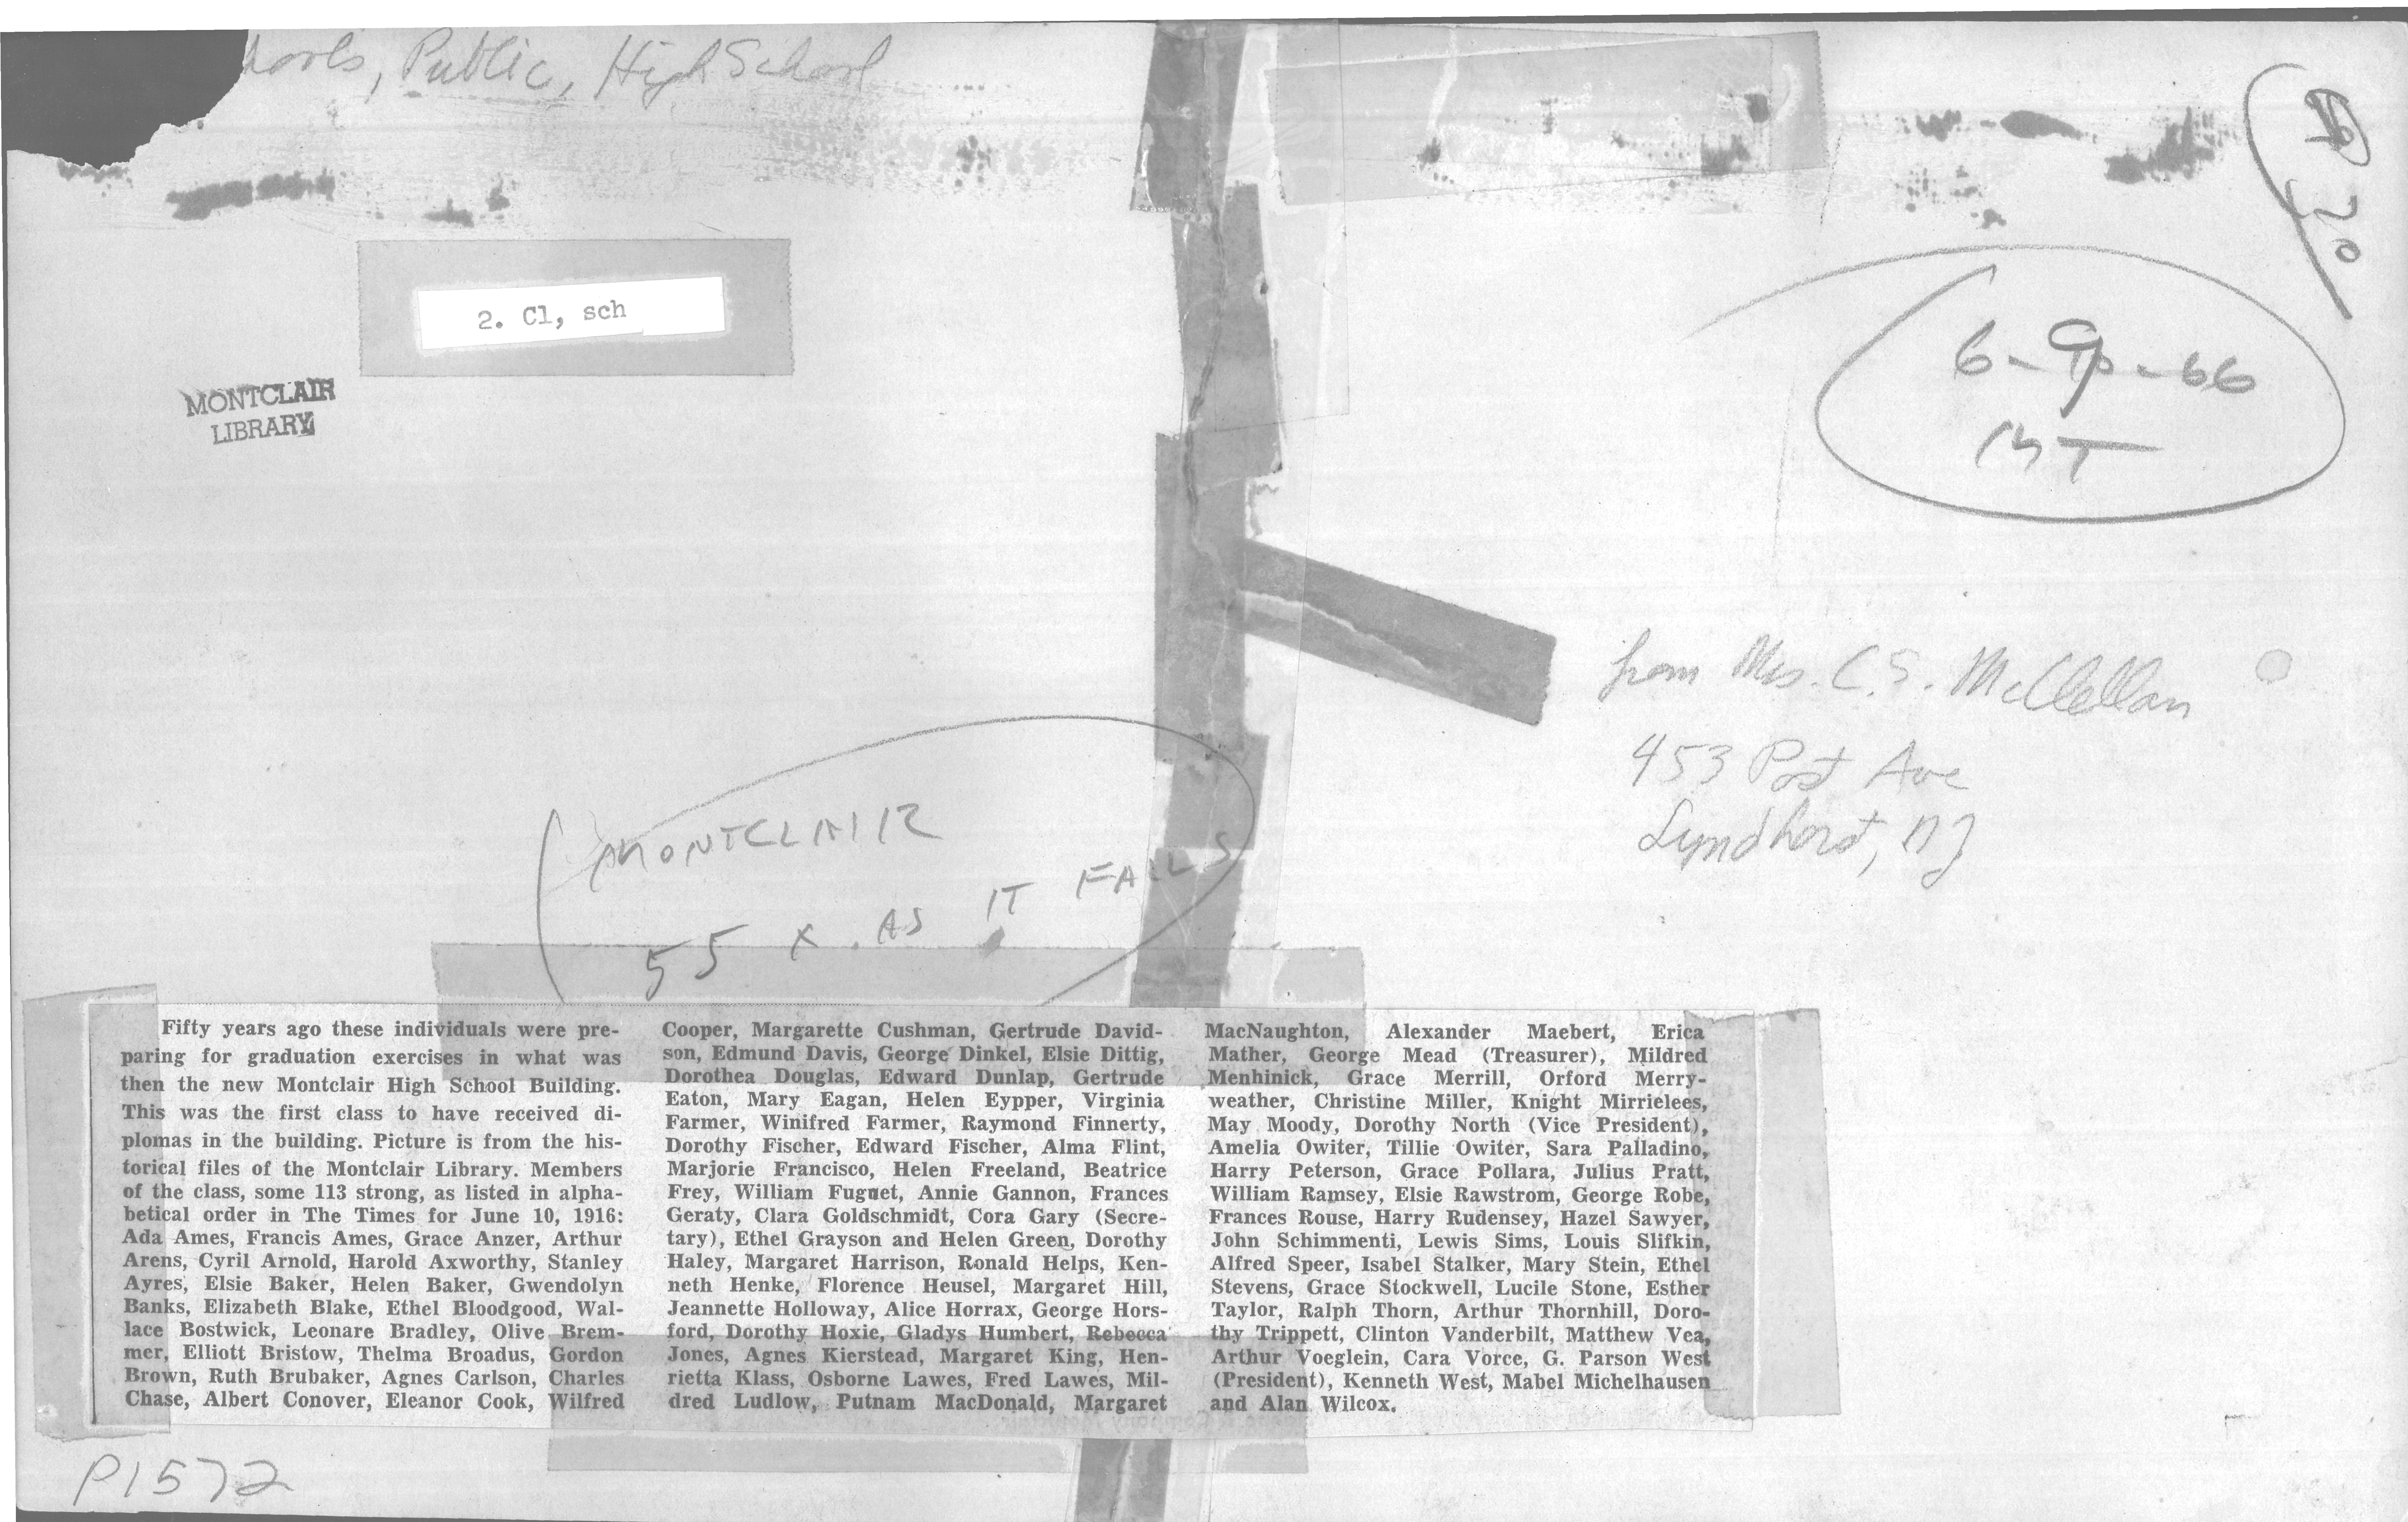 hools, Public, High School
2. Cl, sch
MONTCLAIR
LIBRARY
70
6-9-66
MT
from Mrs. C.S. McClellan
453 Post Ave
Lyndhorst, NJ
MONTCLAIR
55 x AS IT FALLS
Fifty years ago these individuals were pre-
paring for graduation exercises in what was
then the new Montclair High School Building.
This was the first class to have received di-
plomas in the building. Picture is from the his-
torical files of the Montclair Library. Members
of the class, some 113 strong, as listed in alpha-
betical order in The Times for June 10, 1916:
Ada Ames, Francis Ames, Grace Anzer, Arthur
Arens, Cyril Arnold, Harold Axworthy, Stanley
Ayres, Elsie Baker, Helen Baker, Gwendolyn
Banks, Elizabeth Blake, Ethel Bloodgood, Wal-
lace Bostwick, Leonare Bradley, Olive Brem-
mer, Elliott Bristow, Thelma Broadus, Gordon
Brown, Ruth Brubaker, Agnes Carlson, Charles
Chase, Albert Conover, Eleanor Cook, Wilfred
Cooper, Margarette Cushman, Gertrude David-
son, Edmund Davis, George Dinkel, Elsie Dittig,
Dorothea Douglas, Edward Dunlap, Gertrude
Eaton, Mary Eagan, Helen Eypper, Virginia
Farmer, Winifred Farmer, Raymond Finnerty,
Dorothy Fischer, Edward Fischer, Alma Flint,
Marjorie Francisco, Helen Freeland, Beatrice
Frey, William Fuguet, Annie Gannon, Frances
Geraty, Clara Goldschmidt, Cora Gary (Secre-
tary), Ethel Grayson and Helen Green, Dorothy
Haley, Margaret Harrison, Ronald Helps, Ken-
neth Henke, Florence Heusel, Margaret Hill,
Jeannette Holloway, Alice Horrax, George Hors-
ford, Dorothy Hoxie, Gladys Humbert, Rebecca
Jones, Agnes Kierstead, Margaret King, Hen-
rietta Klass, Osborne Lawes, Fred Lawes, Mil-
dred Ludlow, Putnam MacDonald, Margaret
MacNaughton, Alexander Maebert, Erica
Mather, George Mead (Treasurer), Mildred
Menhinick, Grace Merrill, Orford Merry-
weather, Christine Miller, Knight Mirrielees,
May Moody, Dorothy North (Vice President),
Amelia Owiter, Tillie Owiter, Sara Palladino,
Harry Peterson, Grace Pollara, Julius Pratt,
William Ramsey, Elsie Rawstrom, George Robe,
Frances Rouse, Harry Rudensey, Hazel Sawyer,
John Schimmenti, Lewis Sims, Louis Slifkin,
Alfred Speer, Isabel Stalker, Mary Stein, Ethel
Stevens, Grace Stockwell, Lucile Stone, Esther
Taylor, Ralph Thorn, Arthur Thornhill, Doro-
thy Trippett, Clinton Vanderbilt, Matthew Vea,
Arthur Voeglein, Cara Vorce, G. Parson West
(President), Kenneth West, Mabel Michelhausen
and Alan Wilcox.
P1572